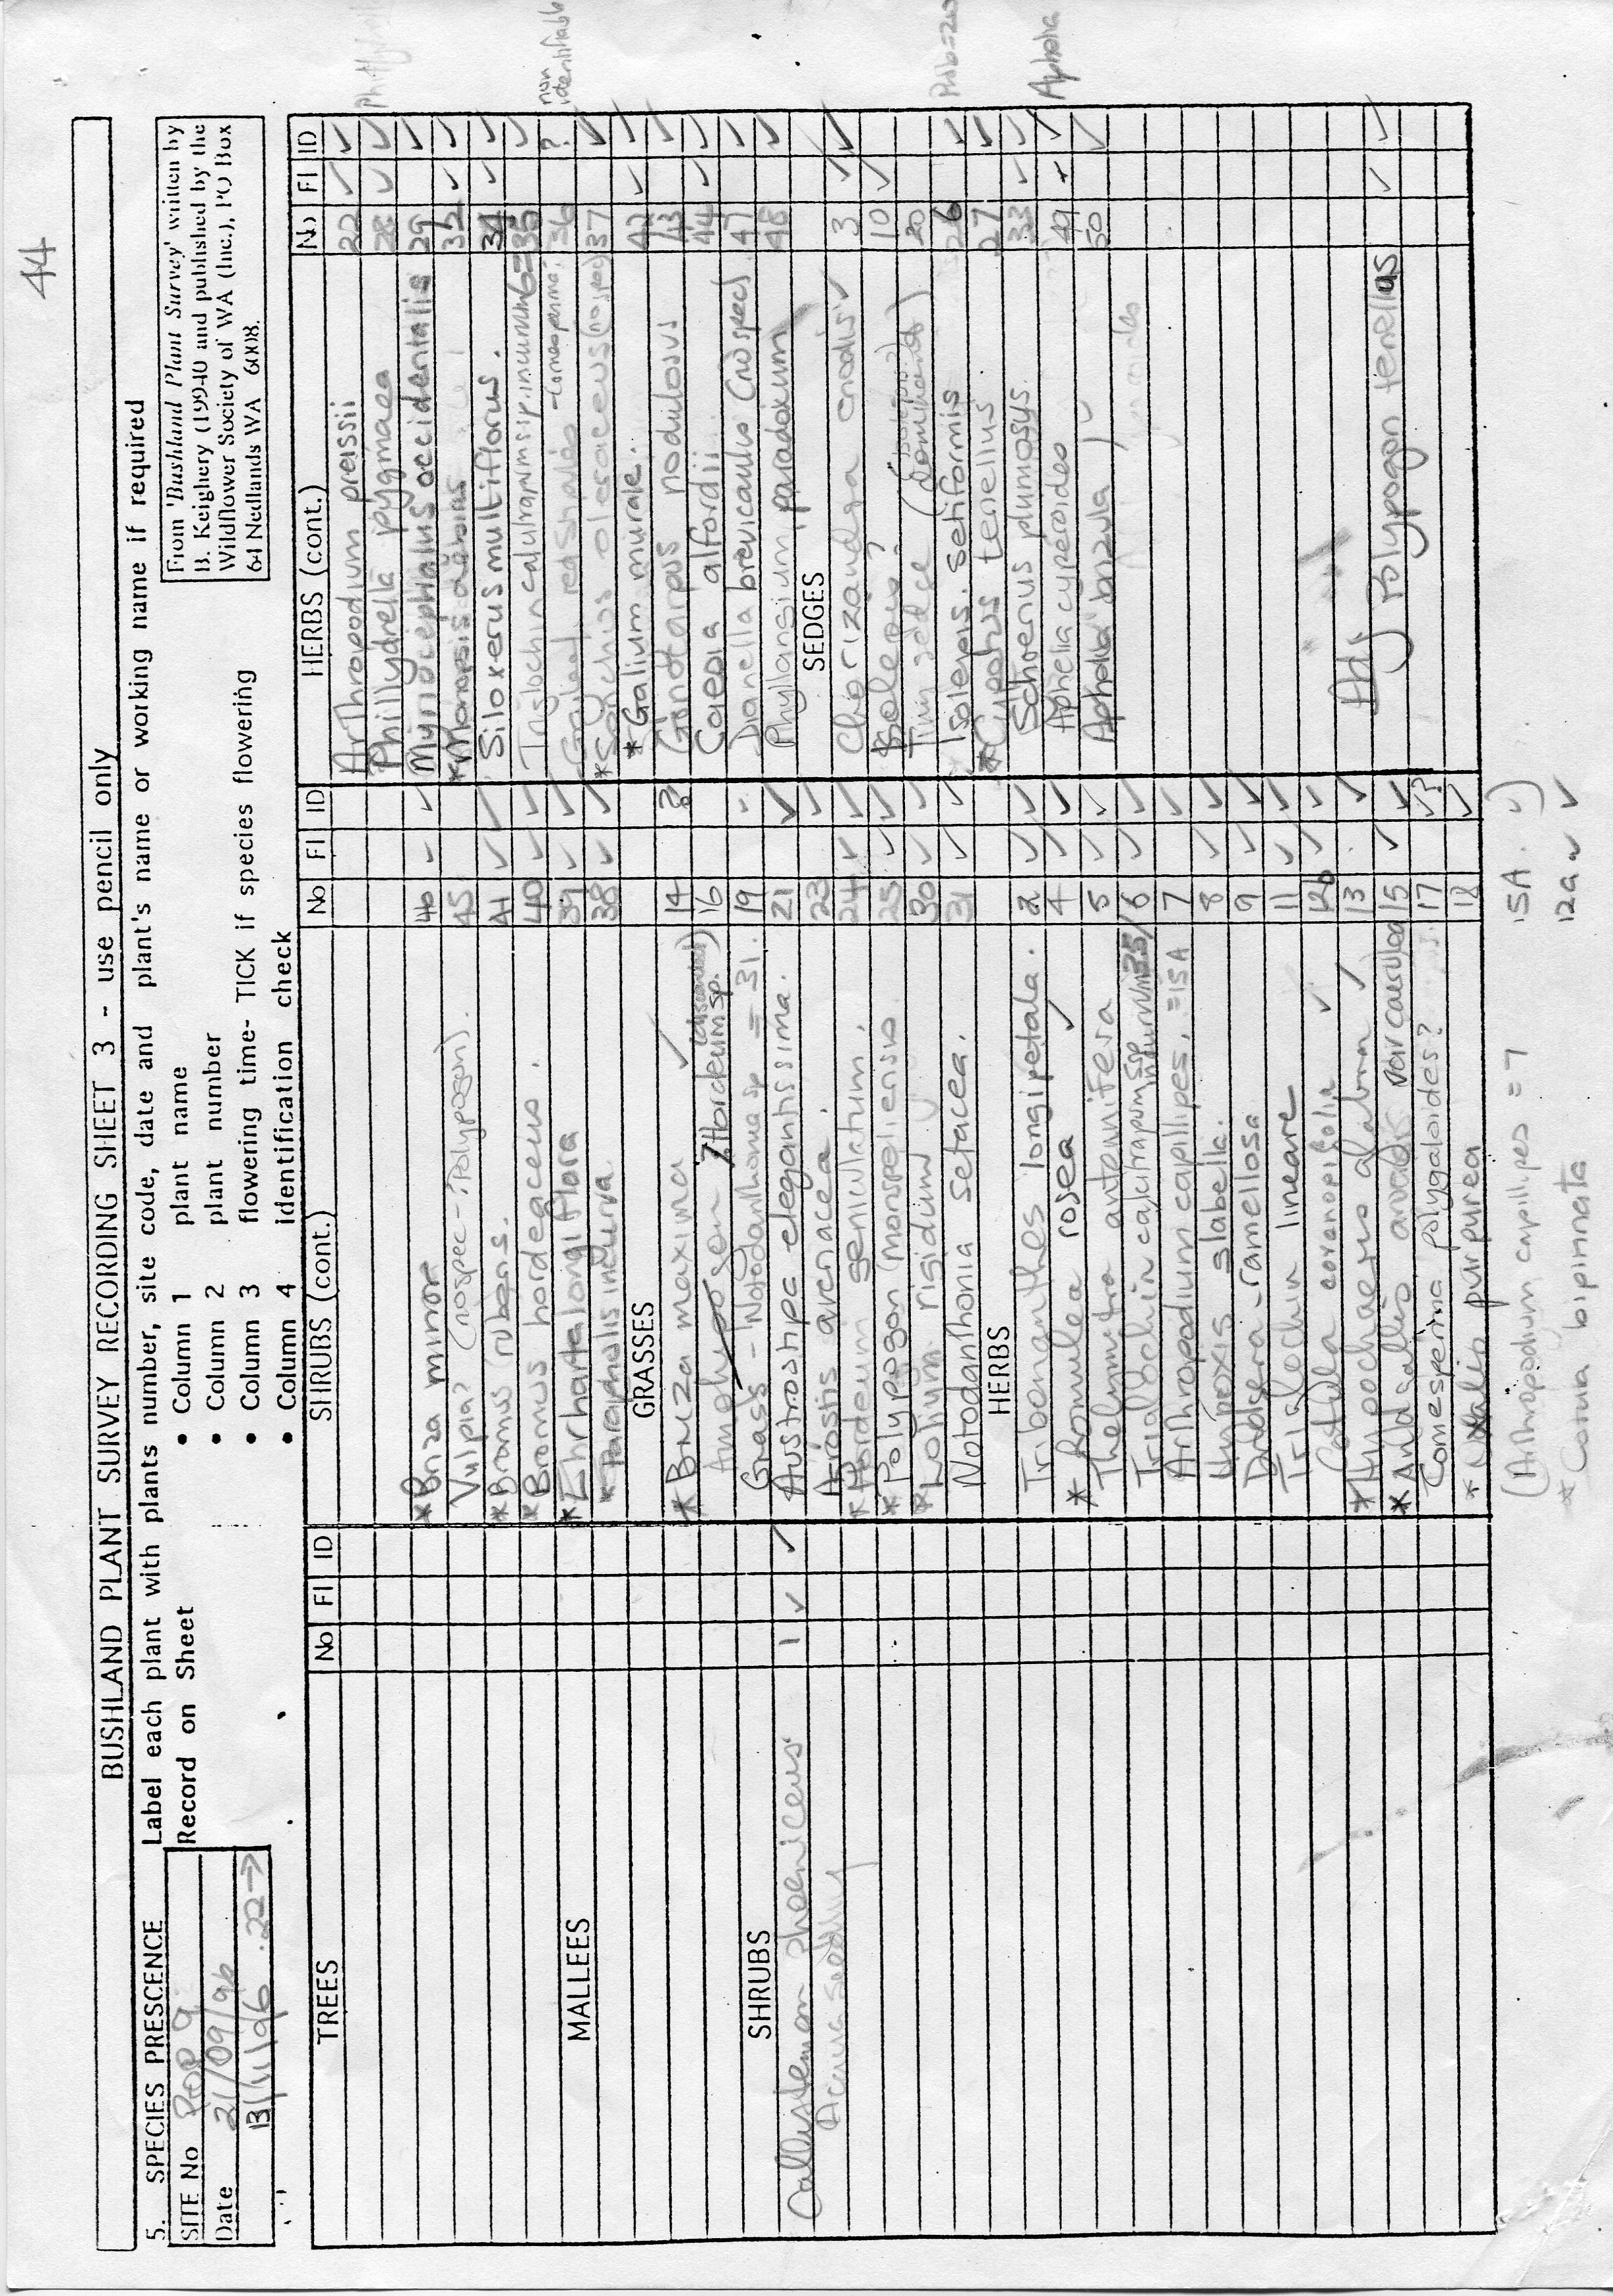 44
BUSHLAND PLANT SURVEY RECORDING SHEET 3 - use pencil only
5. SPECIES PRESCENCE
Label each plant with plants number, site code, date and plant's name or working name if required
SITE No POP 9
Date 21/09/96
13/11/96 22→
Record on Sheet
• Column 1 plant name
• Column 2 plant number
• Column 3 flowering time- TICK if species flowering
• Column 4 identification check
From 'Bushland Plant Survey' written by
B. Keighery (19940 and published by the
Wildflower Society of WA (Inc.), PO Box
64 Nedlands WA 6008.
TREES No Fl ID
MALLEES
SHRUBS
Callistemon phoeniceus 1 ✓ ✓
SHRUBS (cont.) No Fl ID
*Briza minor 46 ✓ ✓
Vulpia? (no spec - ?Polypogon). 45
*Bromus rubens. 41 ✓ ✓
*Bromus hordeaceus. 40 ✓ ✓
*Ehrharta longiflora 39 ✓ ✓
*Parapholis incurva 38 ✓ ✓
GRASSES
*Briza maxima ✓ 14 ?
?Hordeum sp. (discarded) 16 ✓
Grass - Notodanthonia sp = 31. 19
Austrostipa elegantissima. 21 ✓
Agrostis avenacea. 23 ✓
*Hordeum geniculatum. 24 ✓ ✓
*Polypogon monspeliensis 25 ✓ ✓
*Lolium rigidum 30 ✓ ✓
Notodanthonia setacea. 31 ✓ ✓
HERBS
Tribonanthes longipetala. 2 ✓ ✓
*Romulea rosea ✓ 4 ✓ ✓
Thelymitra antennifera 5 ✓ ✓
Triglochin calcitrapum ssp 35/ 6 ✓ ✓
Arthropodium capillipes. =15A 7 ✓
Hypoxis glabella. 8 ✓ ✓
Drosera ramellosa 9 ✓ ✓
Triglochin lineare 11 ✓ ✓
Cotula coronopifolia ✓ 12b ✓ ✓
*Hypochaeris glabra ✓ 13 ✓
*Anagallis arvensis var caerulea 15 ✓ ✓
Comesperma polygaloides? 17 ✓?
*Oxalis purpurea 18 ✓
(Arthropodium capillipes = 7 15A. ✓)
*Cotula bipinnata 12a ✓ ✓
HERBS (cont.) No Fl ID
Arthropodium preissii 22 ✓ ✓
Phillydrella pygmaea 28 ✓ ✓
Myriocephalus occidentalis 29 ✓
*Monopsis debilis 32 ✓ ✓
Siloxerus multiflorus. 34 ✓ ✓
6=35 ✓
36 ?
non
identifiable
*Sonchus oleraceus (no spec) 37 ✓
*Galium murale. 42 ✓ ✓
Gonocarpus nodulosus 43 ✓
Caesia alfordii 44 ✓ ✓
Dianella brevicaulis (no spec) 47 ✓
Phyllangium paradoxum 48 ✓
SEDGES
Chorizandra enodis ✓ 3 ✓ ✓
Isolepis? 10 ✓
Tiny sedge 20
Isolepis setiformis 26 ✓
*Cyperus tenellus 27 ✓
Schoenus plumosus. 33 ✓ ✓
Aphelia cyperoides 49 + ✓
Aphelia
Aphelia brizula 50 ✓
Hdj Polypogon tenellus ✓ ✓